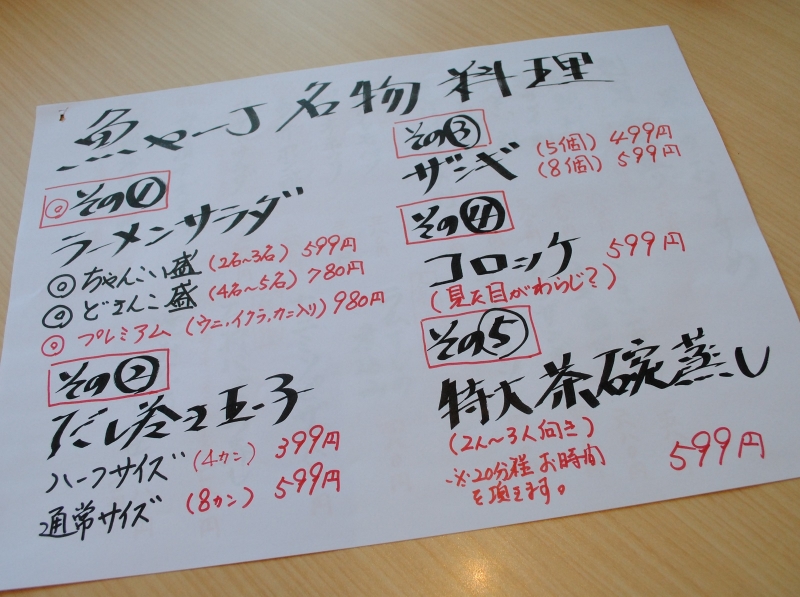 魚や一丁名物料理
◎その①
ラーメンサラダ
◎ちゃんこい盛(2名~3名) 599円
◎どさんこ盛(4名~5名) 780円
◎プレミアム(ウニ,イクラ,カニ入り) 980円
その②
だし巻き玉子
ハーフサイズ(4カン) 399円
通常サイズ(8カン) 599円
その③
ザンギ (5個) 499円
(8個) 599円
その④
コロッケ 599円
(見た目がわらじ?)
その⑤
特大茶碗蒸し
(2人~3人向き)
※20分程お時間
を頂きます。
599円